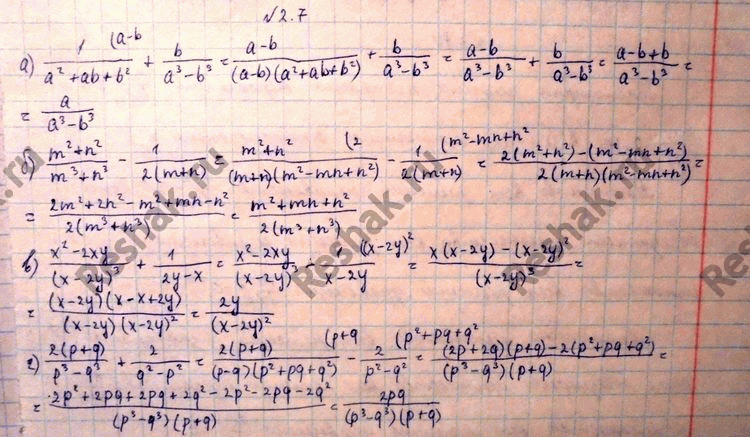 №2.7
а) 1 (a-b / a²+ab+b² + b / a³-b³ = a-b / (a-b)(a²+ab+b²) + b / a³-b³ = a-b / a³-b³ + b / a³-b³ = a-b+b / a³-b³ =
= a / a³-b³
б) m²+n² / m³+n³ - 1 / 2(m+n) = m²+n² (2 / (m+n)(m²-mn+n²) - 1 (m²-mn+n² / 2(m+n) = 2(m²+n²)-(m²-mn+n²) / 2(m+n)(m²-mn+n²) =
= 2m²+2n²-m²+mn-n² / 2(m³+n³) = m²+mn+n² / 2(m³+n³)
в) x²-2xy / (x-2y)³ + 1 / 2y-x = x²-2xy / (x-2y)³ - 1 (x-2y)² / x-2y = x(x-2y)-(x-2y)² / (x-2y)³ =
= (x-2y)(x-x+2y) / (x-2y)(x-2y)² = 2y / (x-2y)²
г) 2(p+q) / p³-q³ + 2 / q²-p² = 2(p+q) (p+q / (p-q)(p²+pq+q²) - 2 (p²+pq+q² / p²-q² = (2p+2q)(p+q)-2(p²+pq+q²) / (p³-q³)(p+q) =
= 2p²+2pq+2pq+2q²-2p²-2pq-2q² / (p³-q³)(p+q) = 2pq / (p³-q³)(p+q)
Reshak.ru